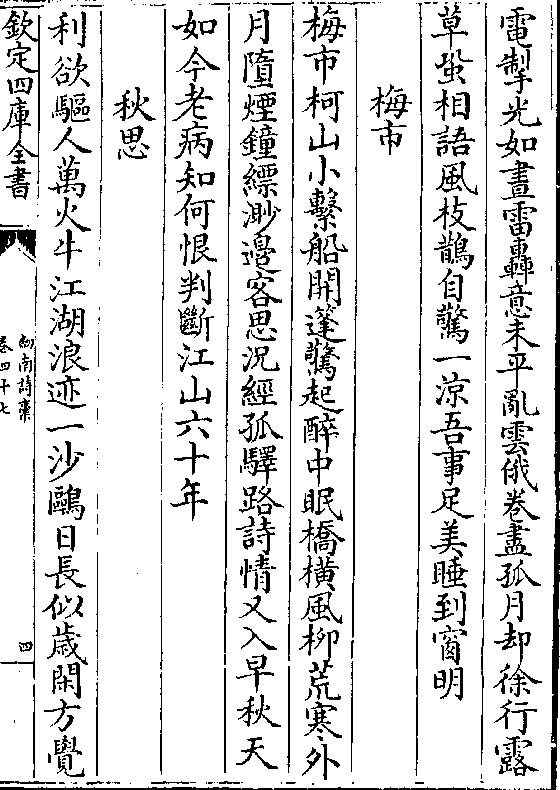 電掣光如晝雷轟意未平亂雲俄卷盡孤月却徐行露
草蛩相語風枝鵲自驚一涼吾事足美睡到窗明
梅市
梅市柯山小繫船開篷驚起醉中眠橋横風柳荒寒外
月墮煙鐘縹渺邊客思況經孤驛路詩情又入早秋天
如今老病知何恨判斷江山六十年
秋思
利欲驅人萬火牛江湖浪迹一沙鷗日長似歳閑方覺
欽定四庫全書
劍南詩稾
卷四十七
四